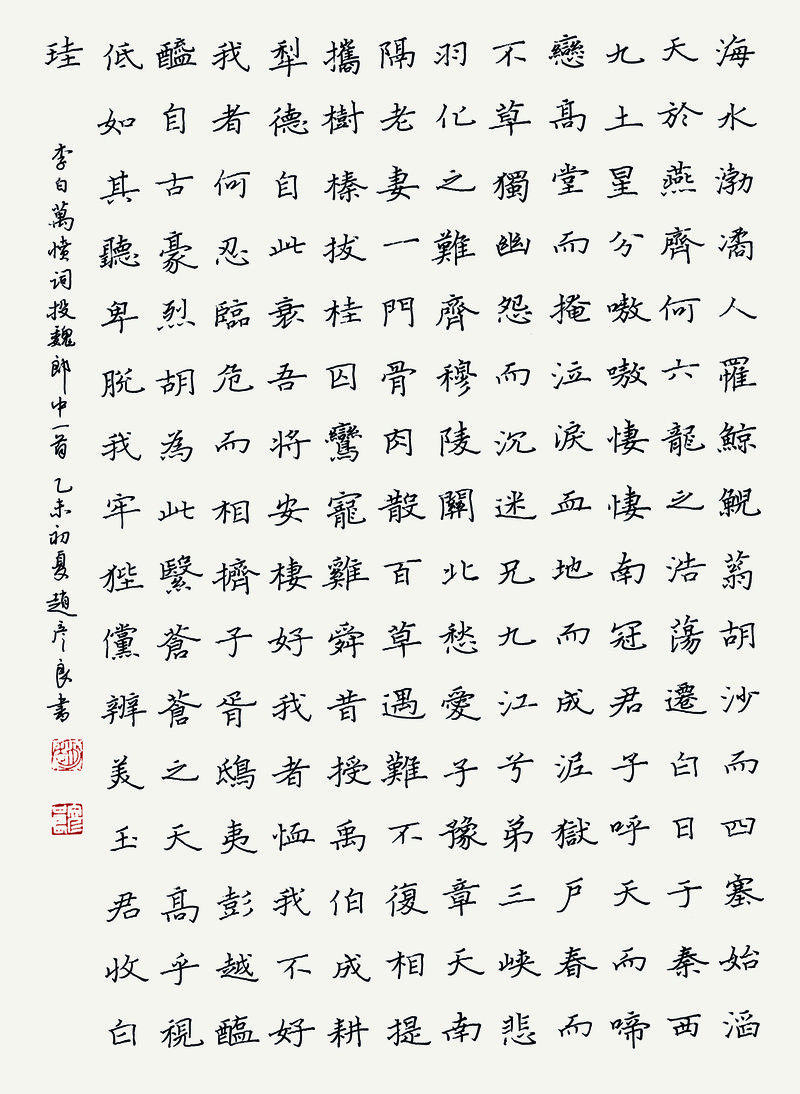 海水渤潏人罹鯨鯢蓊胡沙而四塞始滔
天於燕齊何六龍之浩蕩遷白日于秦西
九土星分嗷嗷悽悽南冠君子呼天而啼
戀高堂而掩泣淚血地而成泥獄戶春而
不草獨幽怨而沉迷兄九江兮弟三峽悲
羽化之難齊穆陵關北愁愛子豫章天南
隔老妻一門骨肉散百草遇難不復相提
攜樹榛拔桂囚鸞寵雞舜昔授禹伯成耕
犁德自此衰吾將安棲好我者恤我不好
我者何忍臨危而相擠子胥鴟夷彭越醢
醯自古豪烈胡為此繄蒼蒼之天高乎視
低如其聽卑脫我牢狴儻辨美玉君收白
珪
李白萬憤词投魏郎中一首 乙未初夏趙彦良書